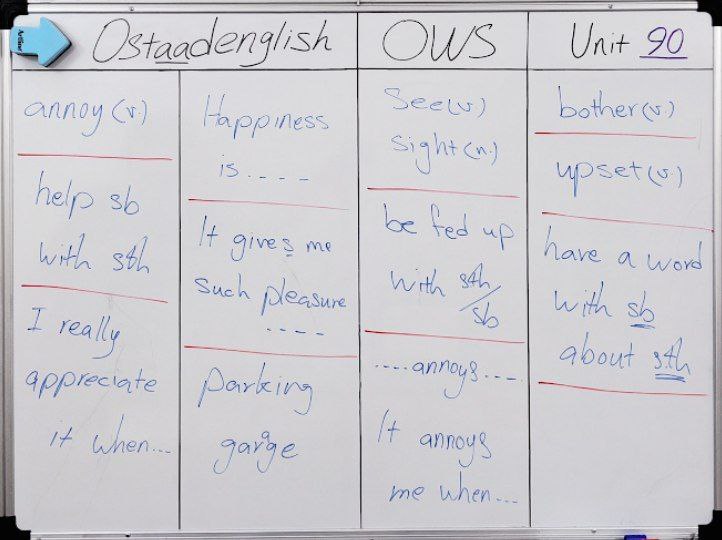 Ostaadenglish
OWS
Unit 90
annoy (v.)
help sb
with sth
I really
appreciate
it when...
Happiness
is ....
It gives me
such pleasure
....
parking
garage
See (v.)
sight (n.)
be fed up
with sth/sb
....annoys....
It annoys
me when...
bother (v.)
upset (v.)
have a word
with sb
about sth